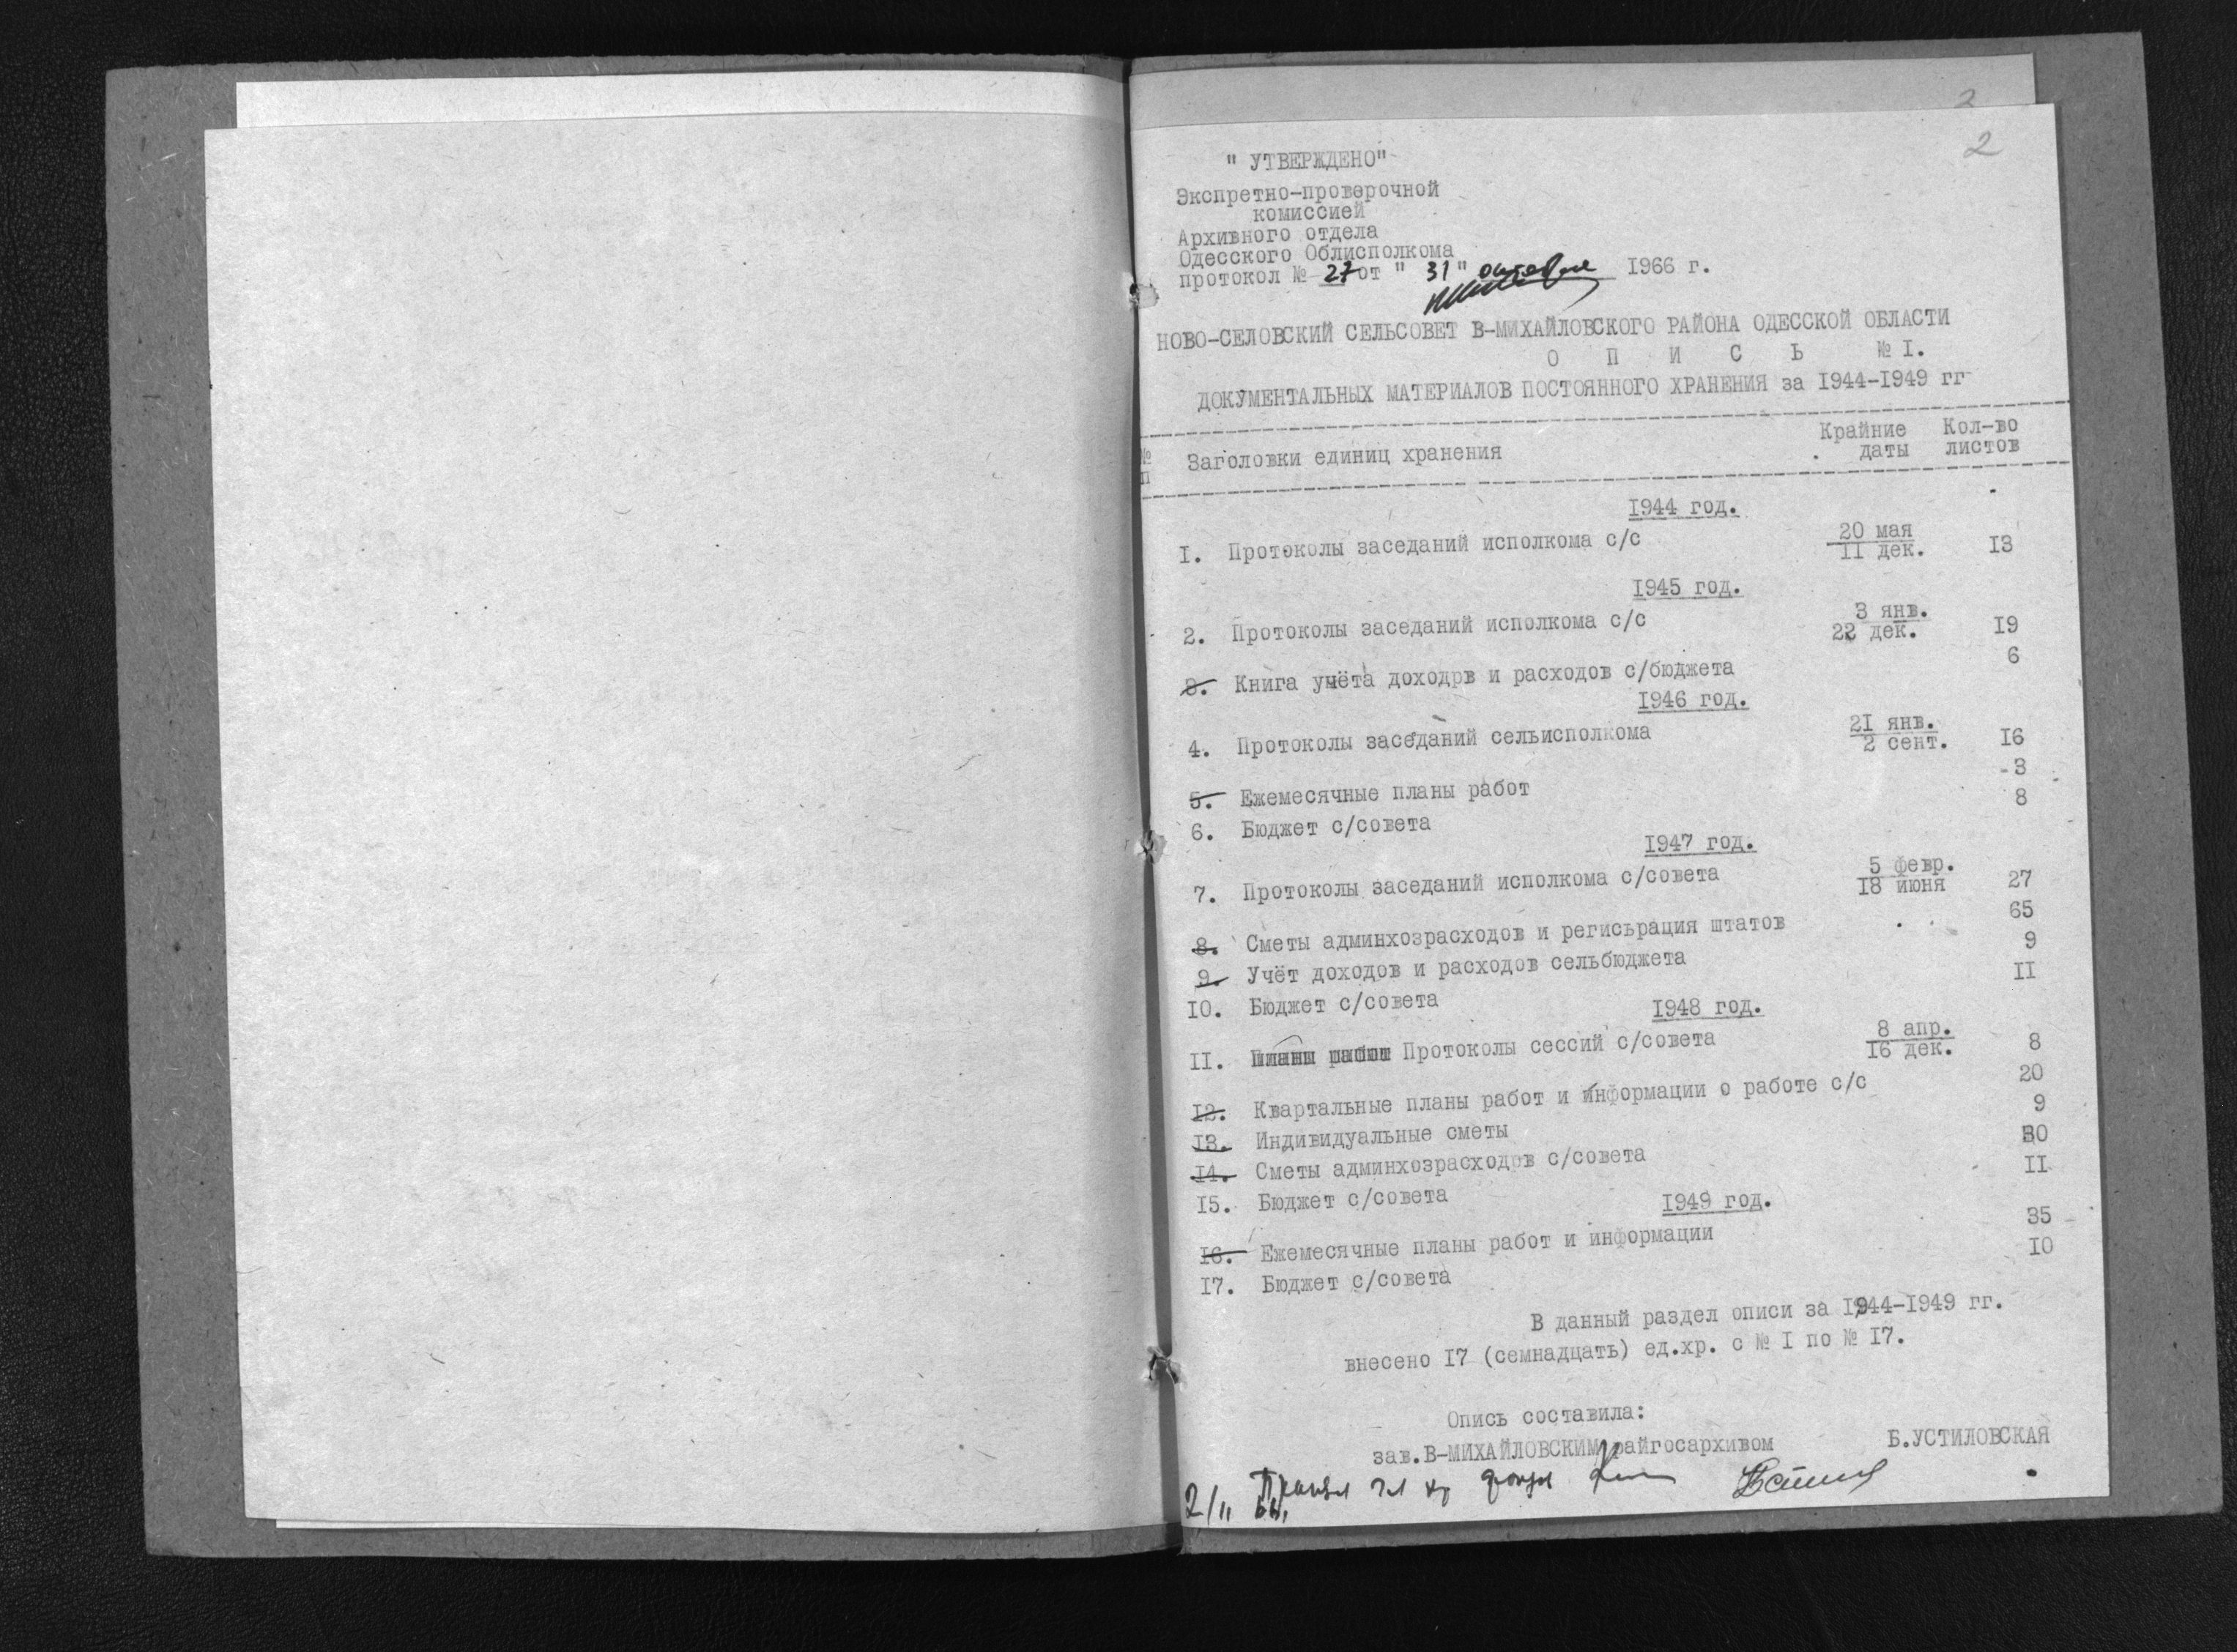 2
" УТВЕРЖДЕНО"
Экспретно-проверочной
комиссией
Архивного отдела
Одесского Облисполкома
протокол № 27 от " 31 " октября 1966 г.
НОВО-СЕЛОВСКИЙ СЕЛЬСОВЕТ В-МИХАЙЛОВСКОГО РАЙОНА ОДЕССКОЙ ОБЛАСТИ
О П И С Ь № I.
ДОКУМЕНТАЛЬНЫХ МАТЕРИАЛОВ ПОСТОЯННОГО ХРАНЕНИЯ за I944-I949 гг
№ п Заголовки единиц хранения Крайние даты Кол-во листов
I944 год.
I. Протоколы заседаний исполкома с/с 20 мая II дек. I3
I945 год.
2. Протоколы заседаний исполкома с/с 3 янв. 22 дек. I9
3. Книга учёта доходрв и расходов с/бюджета 6
I946 год.
4. Протоколы заседаний сельисполкома 2I янв. 2 сент. I6
5. Ежемесячные планы работ 3
6. Бюджет с/совета 8
I947 год.
7. Протоколы заседаний исполкома с/совета 5 февр. I8 июня 27
8. Сметы админхозрасходов и регисьрация штатов 65
9. Учёт доходов и расходов сельбюджета 9
I0. Бюджет с/совета II
I948 год.
II. Протоколы сессий с/совета 8 апр. I6 дек. 8
I2. Квартальные планы работ и информации о работе с/с 20
I3. Индивидуальные сметы 9
I4. Сметы админхозрасходрв с/совета 30
I5. Бюджет с/совета II
I949 год.
I6. Ежемесячные планы работ и информации 35
I7. Бюджет с/совета I0
В данный раздел описи за I944-I949 гг.
внесено I7 (семнадцать) ед.хр. с № I по № I7.
Опись составила:
зав.В-МИХАЙЛОВСКИМ райгосархивом Б.УСТИЛОВСКАЯ
2/II 66